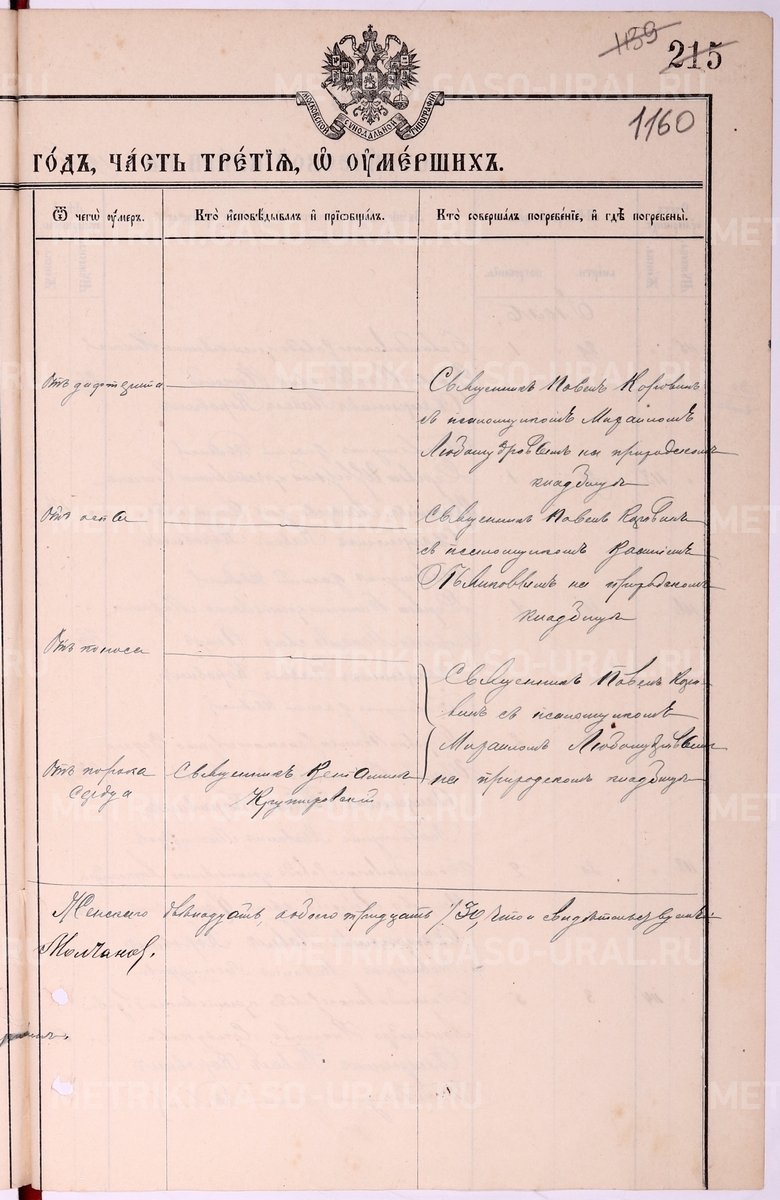 1139
215
1160
МОСКОВСКОЙ СѴНОДАЛЬНОЙ ТИПОГРАФІИ
ГО́ДЪ, ЧА́СТЬ ТРЕ́ТІѦ, Ѡ҆ ОУ҆МЕ́РШИХЪ.
Ѿ чегѡ̀ оу҆́меръ.
Кто̀ и҆сповѣ́дывалъ и҆ прїѻбща́лъ.
Кто̀ соверша́лъ погребе́нїе, и҆ гдѣ̀ погребены̀.
Отъ дифтерита
Священникъ Павелъ Коровинъ
съ псаломщикомъ Михаиломъ
Любомудровымъ на приходскомъ
кладбищѣ
Отъ оспы
Священникъ Павелъ Коровинъ
съ псаломщикомъ
на приходскомъ
кладбищѣ
Отъ поноса
Священникъ Павелъ Коро-
винъ съ псаломщикомъ
Михаиломъ Любомудровымъ
на приходскомъ кладбищѣ
Отъ порока
сердца
Священникъ Веніаминъ
Женскаго двѣнадцать, обоего тридцать /30/, что и свидѣтельствуемъ:
Молчанов.
METRIKI.GASO-URAL.RU